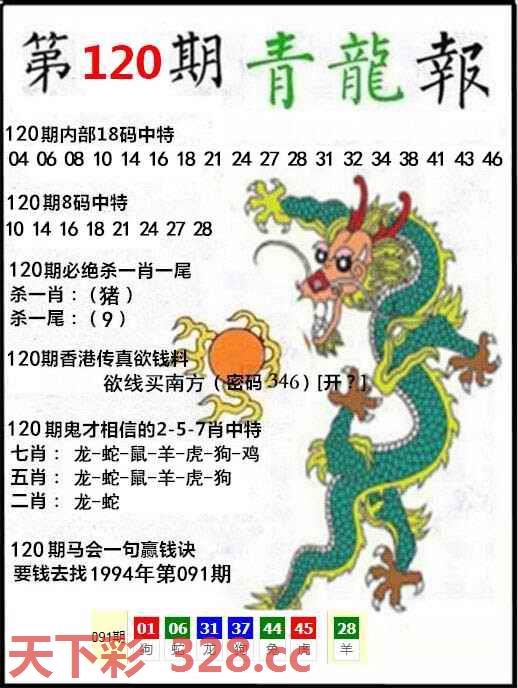 第120期青龍報
120期内部18码中特
04 06 08 10 14 16 18 21 24 27 28 31 32 34 38 41 43 46
120期8码中特
10 14 16 18 21 24 27 28
120期必绝杀一肖一尾
杀一肖:(猪)
杀一尾:(9)
120期香港传真欲钱料
欲线买南方(密码346)[开?]
120期鬼才相信的2-5-7肖中特
七肖: 龙-蛇-鼠-羊-虎-狗-鸡
五肖: 龙-蛇-鼠-羊-虎-狗
二肖: 龙-蛇
120期马会一句赢钱诀
要钱去找1994年第091期
091期 01 06 31 37 44 45 28
狗 蛇 龙 狗 兔 虎 羊
天下彩 328.cc